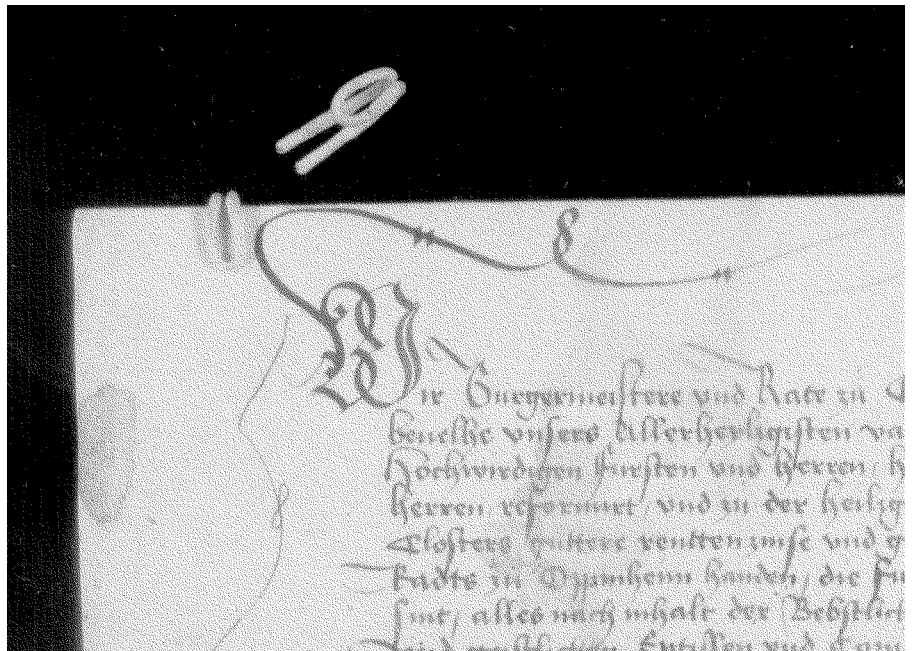 Wir Burgermeistere vnd Rate zu
beuelhe vnsers Allerheyligisten va
Hochwirdigen fursten vnd herren / h
herren reformirt / vnd in der heilig
Closters guttere rentten zinse vnd g
Radts zu handen / die
sint / alles nach inhalt der Bebstlich
vnd